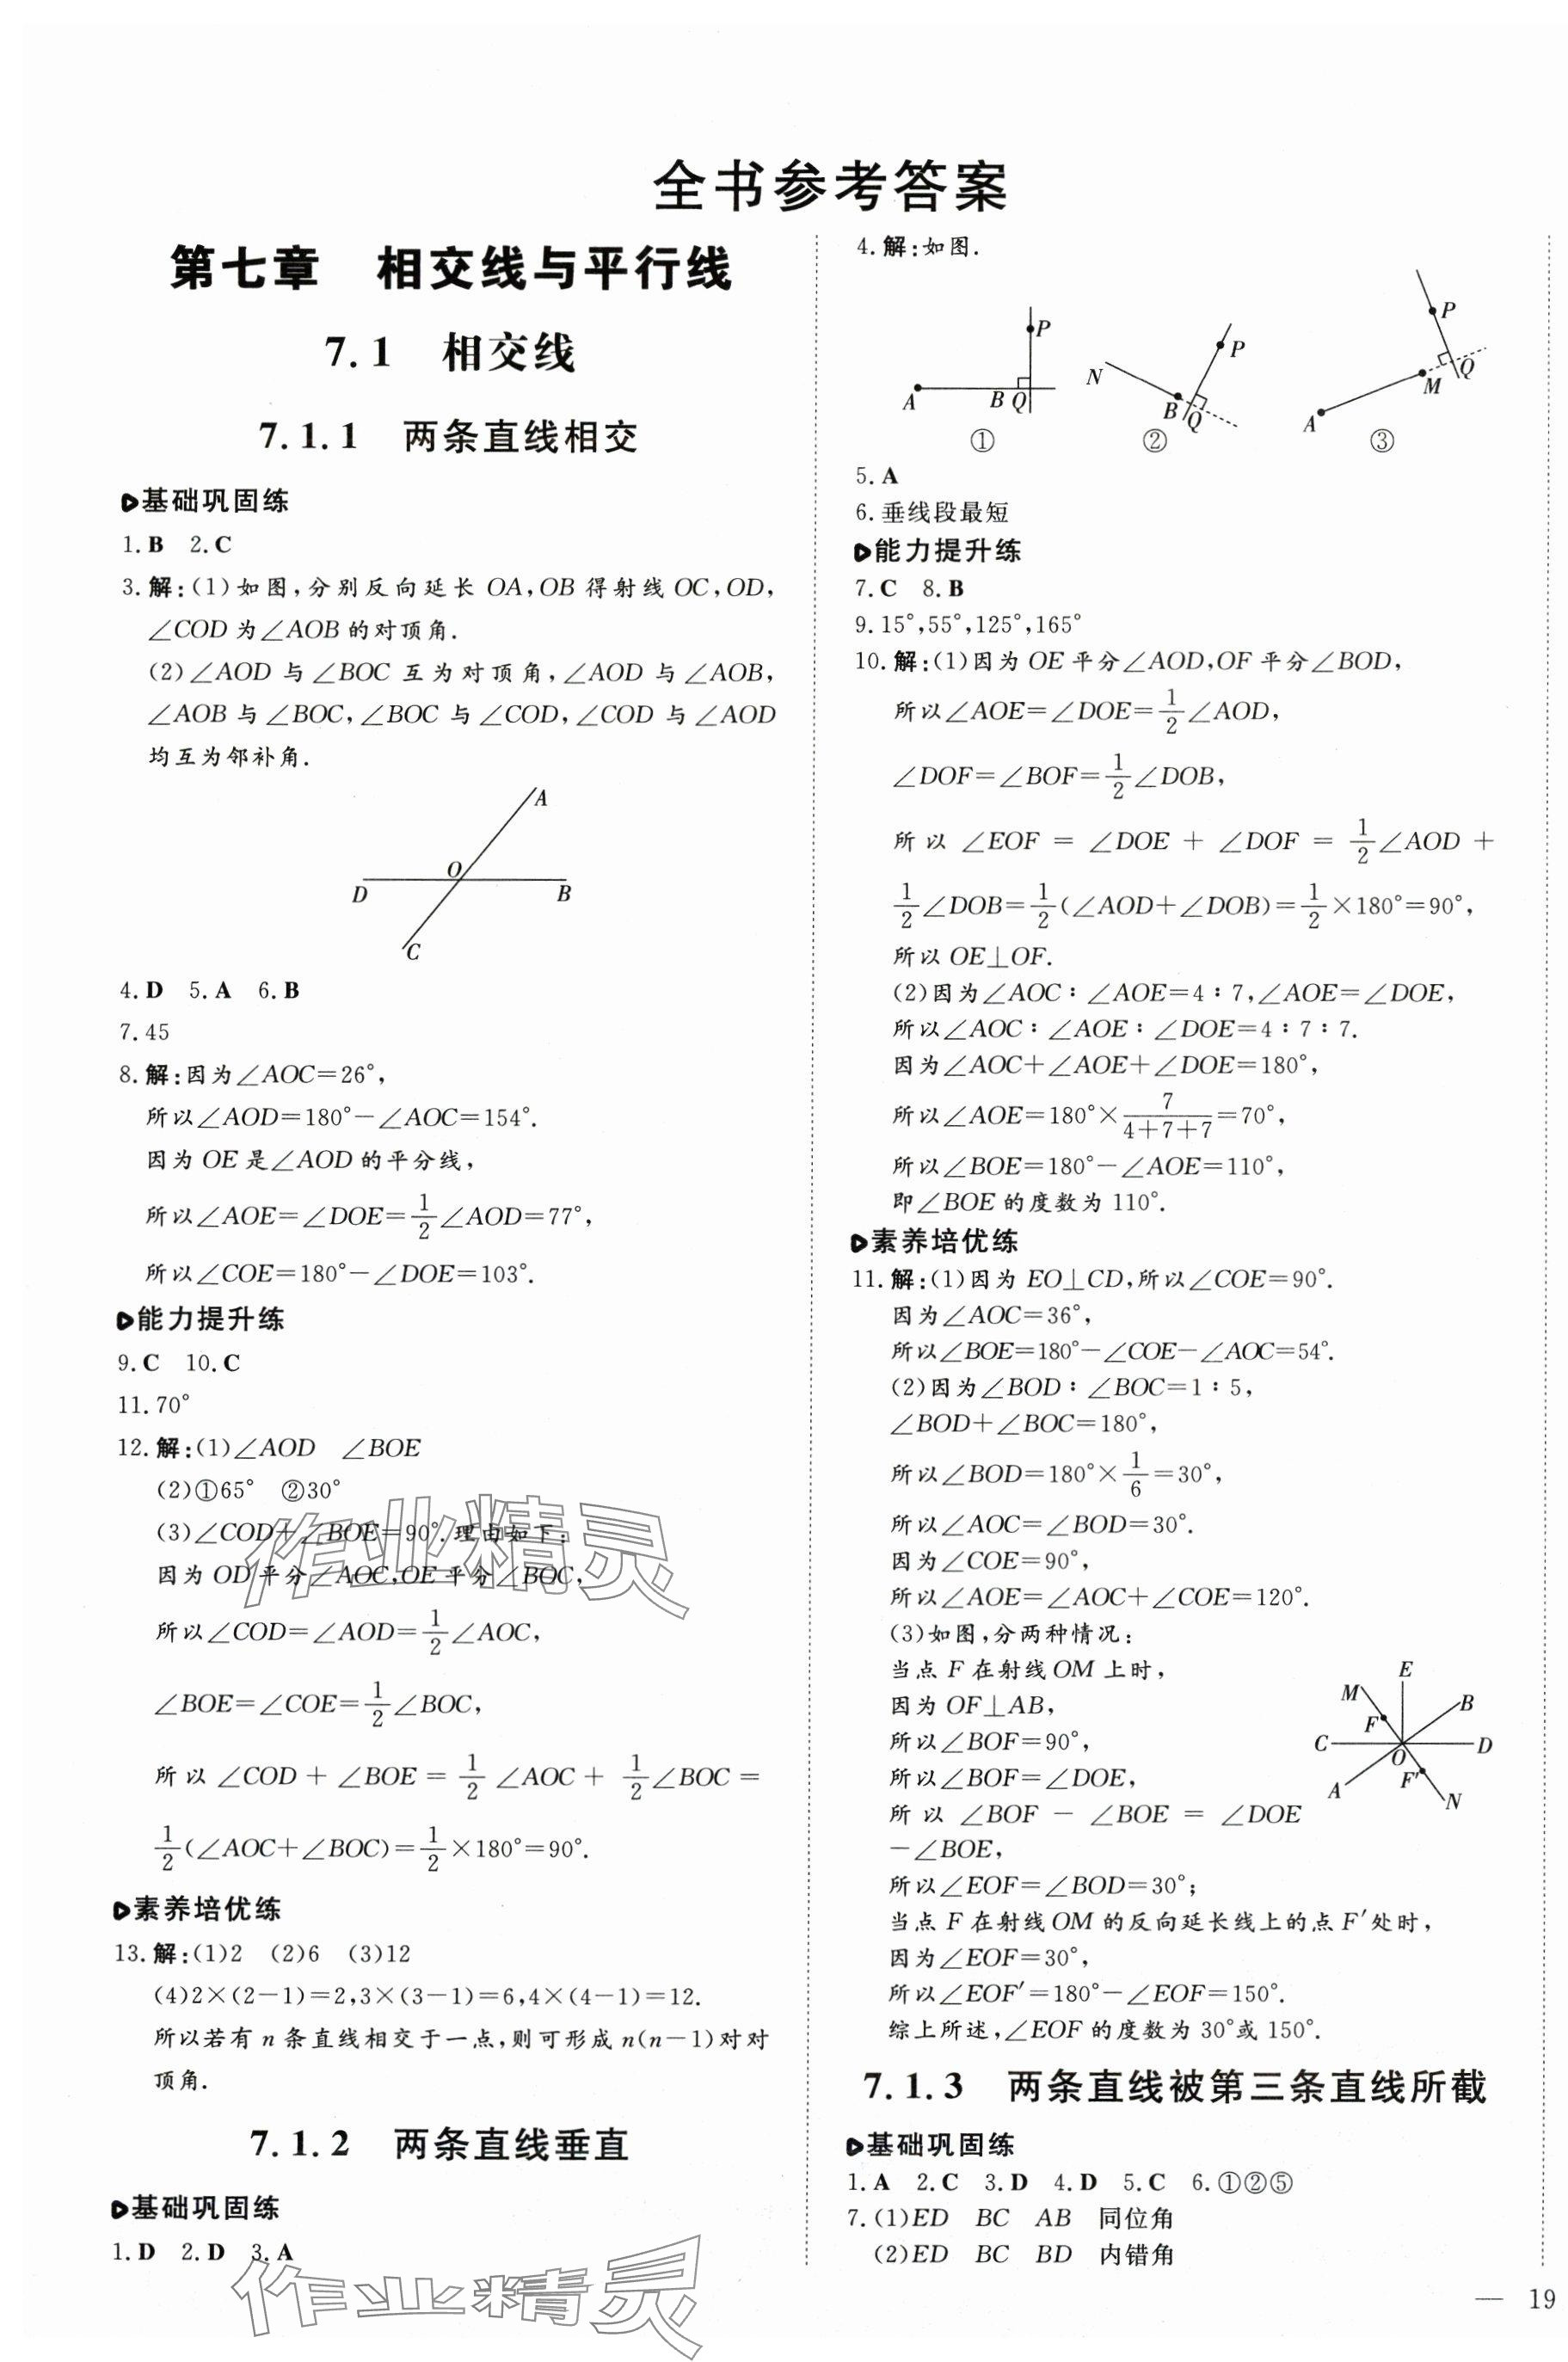 全书参考答案
第七章　相交线与平行线
7.1　相交线
7.1.1　两条直线相交
基础巩固练
1.B　2.C
3.解:(1)如图,分别反向延长 OA,OB 得射线 OC,OD,
∠COD 为∠AOB 的对顶角.
(2)∠AOD 与∠BOC 互为对顶角,∠AOD 与∠AOB,
∠AOB 与∠BOC,∠BOC 与∠COD,∠COD 与∠AOD
均互为邻补角.
A
O
D
B
C
4.D　5.A　6.B
7.45
8.解:因为∠AOC=26°,
所以∠AOD=180°-∠AOC=154°.
因为 OE 是∠AOD 的平分线,
所以∠AOE=∠DOE=1/2∠AOD=77°,
所以∠COE=180°-∠DOE=103°.
能力提升练
9.C　10.C
11.70°
12.解:(1)∠AOD　∠BOE
(2)①65°　②30°
(3)∠COD+∠BOE=90°.理由如下:
因为 OD 平分∠AOC,OE 平分∠BOC,
所以∠COD=∠AOD=1/2∠AOC,
∠BOE=∠COE=1/2∠BOC,
所以∠COD+∠BOE=1/2∠AOC+1/2∠BOC=
1/2(∠AOC+∠BOC)=1/2×180°=90°.
素养培优练
13.解:(1)2　(2)6　(3)12
(4)2×(2-1)=2,3×(3-1)=6,4×(4-1)=12.
所以若有 n 条直线相交于一点,则可形成 n(n-1)对对
顶角.
7.1.2　两条直线垂直
基础巩固练
1.D　2.D　3.A
4.解:如图.
P
A
B Q
①
N
P
B
Q
②
P
Q
M
A
③
5.A
6.垂线段最短
能力提升练
7.C　8.B
9.15°,55°,125°,165°
10.解:(1)因为 OE 平分∠AOD,OF 平分∠BOD,
所以∠AOE=∠DOE=1/2∠AOD,
∠DOF=∠BOF=1/2∠DOB,
所以∠EOF=∠DOE+∠DOF=1/2∠AOD+
1/2∠DOB=1/2(∠AOD+∠DOB)=1/2×180°=90°,
所以 OE⊥OF.
(2)因为∠AOC∶∠AOE=4∶7,∠AOE=∠DOE,
所以∠AOC∶∠AOE∶∠DOE=4∶7∶7.
因为∠AOC+∠AOE+∠DOE=180°,
所以∠AOE=180°×7/(4+7+7)=70°,
所以∠BOE=180°-∠AOE=110°,
即∠BOE 的度数为 110°.
素养培优练
11.解:(1)因为 EO⊥CD,所以∠COE=90°.
因为∠AOC=36°,
所以∠BOE=180°-∠COE-∠AOC=54°.
(2)因为∠BOD∶∠BOC=1∶5,
∠BOD+∠BOC=180°,
所以∠BOD=180°×1/6=30°,
所以∠AOC=∠BOD=30°.
因为∠COE=90°,
所以∠AOE=∠AOC+∠COE=120°.
(3)如图,分两种情况:
当点 F 在射线 OM 上时,
因为 OF⊥AB,
所以∠BOF=90°,
所以∠BOF=∠DOE,
所以∠BOF-∠BOE=∠DOE
-∠BOE,
所以∠EOF=∠BOD=30°;
E
M
B
F
C
O
D
A
F′
N
当点 F 在射线 OM 的反向延长线上的点 F′处时,
因为∠EOF=30°,
所以∠EOF′=180°-∠EOF=150°.
综上所述,∠EOF 的度数为 30°或 150°.
7.1.3　两条直线被第三条直线所截
基础巩固练
1.A　2.C　3.D　4.D　5.C　6.①②⑤
7.(1)ED　BC　AB　同位角
(2)ED　BC　BD　内错角
— 19
作业精灵
作业精灵